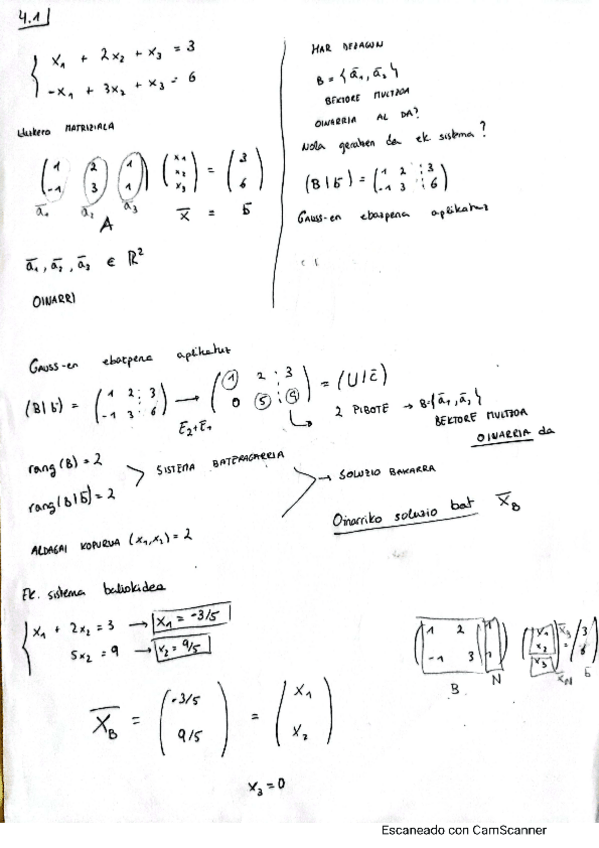 4.1
x₁ + 2x₂ + x₃ = 3
-x₁ + 3x₂ + x₃ = 6
MATRIZIALA
( 1 2 1 ) ( x₁ ) = ( 3 )
( -1 3 1 ) ( x₂ ) ( 6 )
( x₃ )
a̅₁ a̅₂ a̅₃ x̅ = b̅
A
a̅₁, a̅₂, a̅₃ ∈ ℝ²
OINARRI
HAR DEZAGUN
B = { a̅₁, a̅₂ }
BEKTORE MULTZOA
OINARRIA AL DA?
Nola geratzen da ek. sistema?
(B | b̅) = ( 1 2 ⋮ 3 )
( -1 3 ⋮ 6 )
Gauss-en ebazpena aplikatuz
Gauss-en ebazpena aplikatuz
(B | b̅) = ( 1 2 ⋮ 3 ) → ( 1 2 ⋮ 3 ) = (U | c̅)
( -1 3 ⋮ 6 ) ( 0 5 ⋮ 9 )
E₂+E₁
2 PIBOTE → B={a̅₁, a̅₂}
BEKTORE MULTZOA
OINARRIA da
rang(B) = 2
rang(B | b̅) = 2
SISTEMA BATERAGARRIA
ALDAGAI KOPURUA (x₁, x₂) = 2
→ SOLUZIO BAKARRA
Oinarriko soluzio bat x̅_B
Ek. sistema baliokidea
x₁ + 2x₂ = 3 → x₁ = -3/5
5x₂ = 9 → x₂ = 9/5
x̅_B = ( -3/5 ) = ( x₁ )
( 9/5 ) ( x₂ )
x₃ = 0
( 1 2 1 ) ( x₁ ) x̅_B = ( 3 )
( -1 3 1 ) ( x₂ ) ( 6 )
( x₃ ) x̅_N b̅
B N
Escaneado con CamScanner